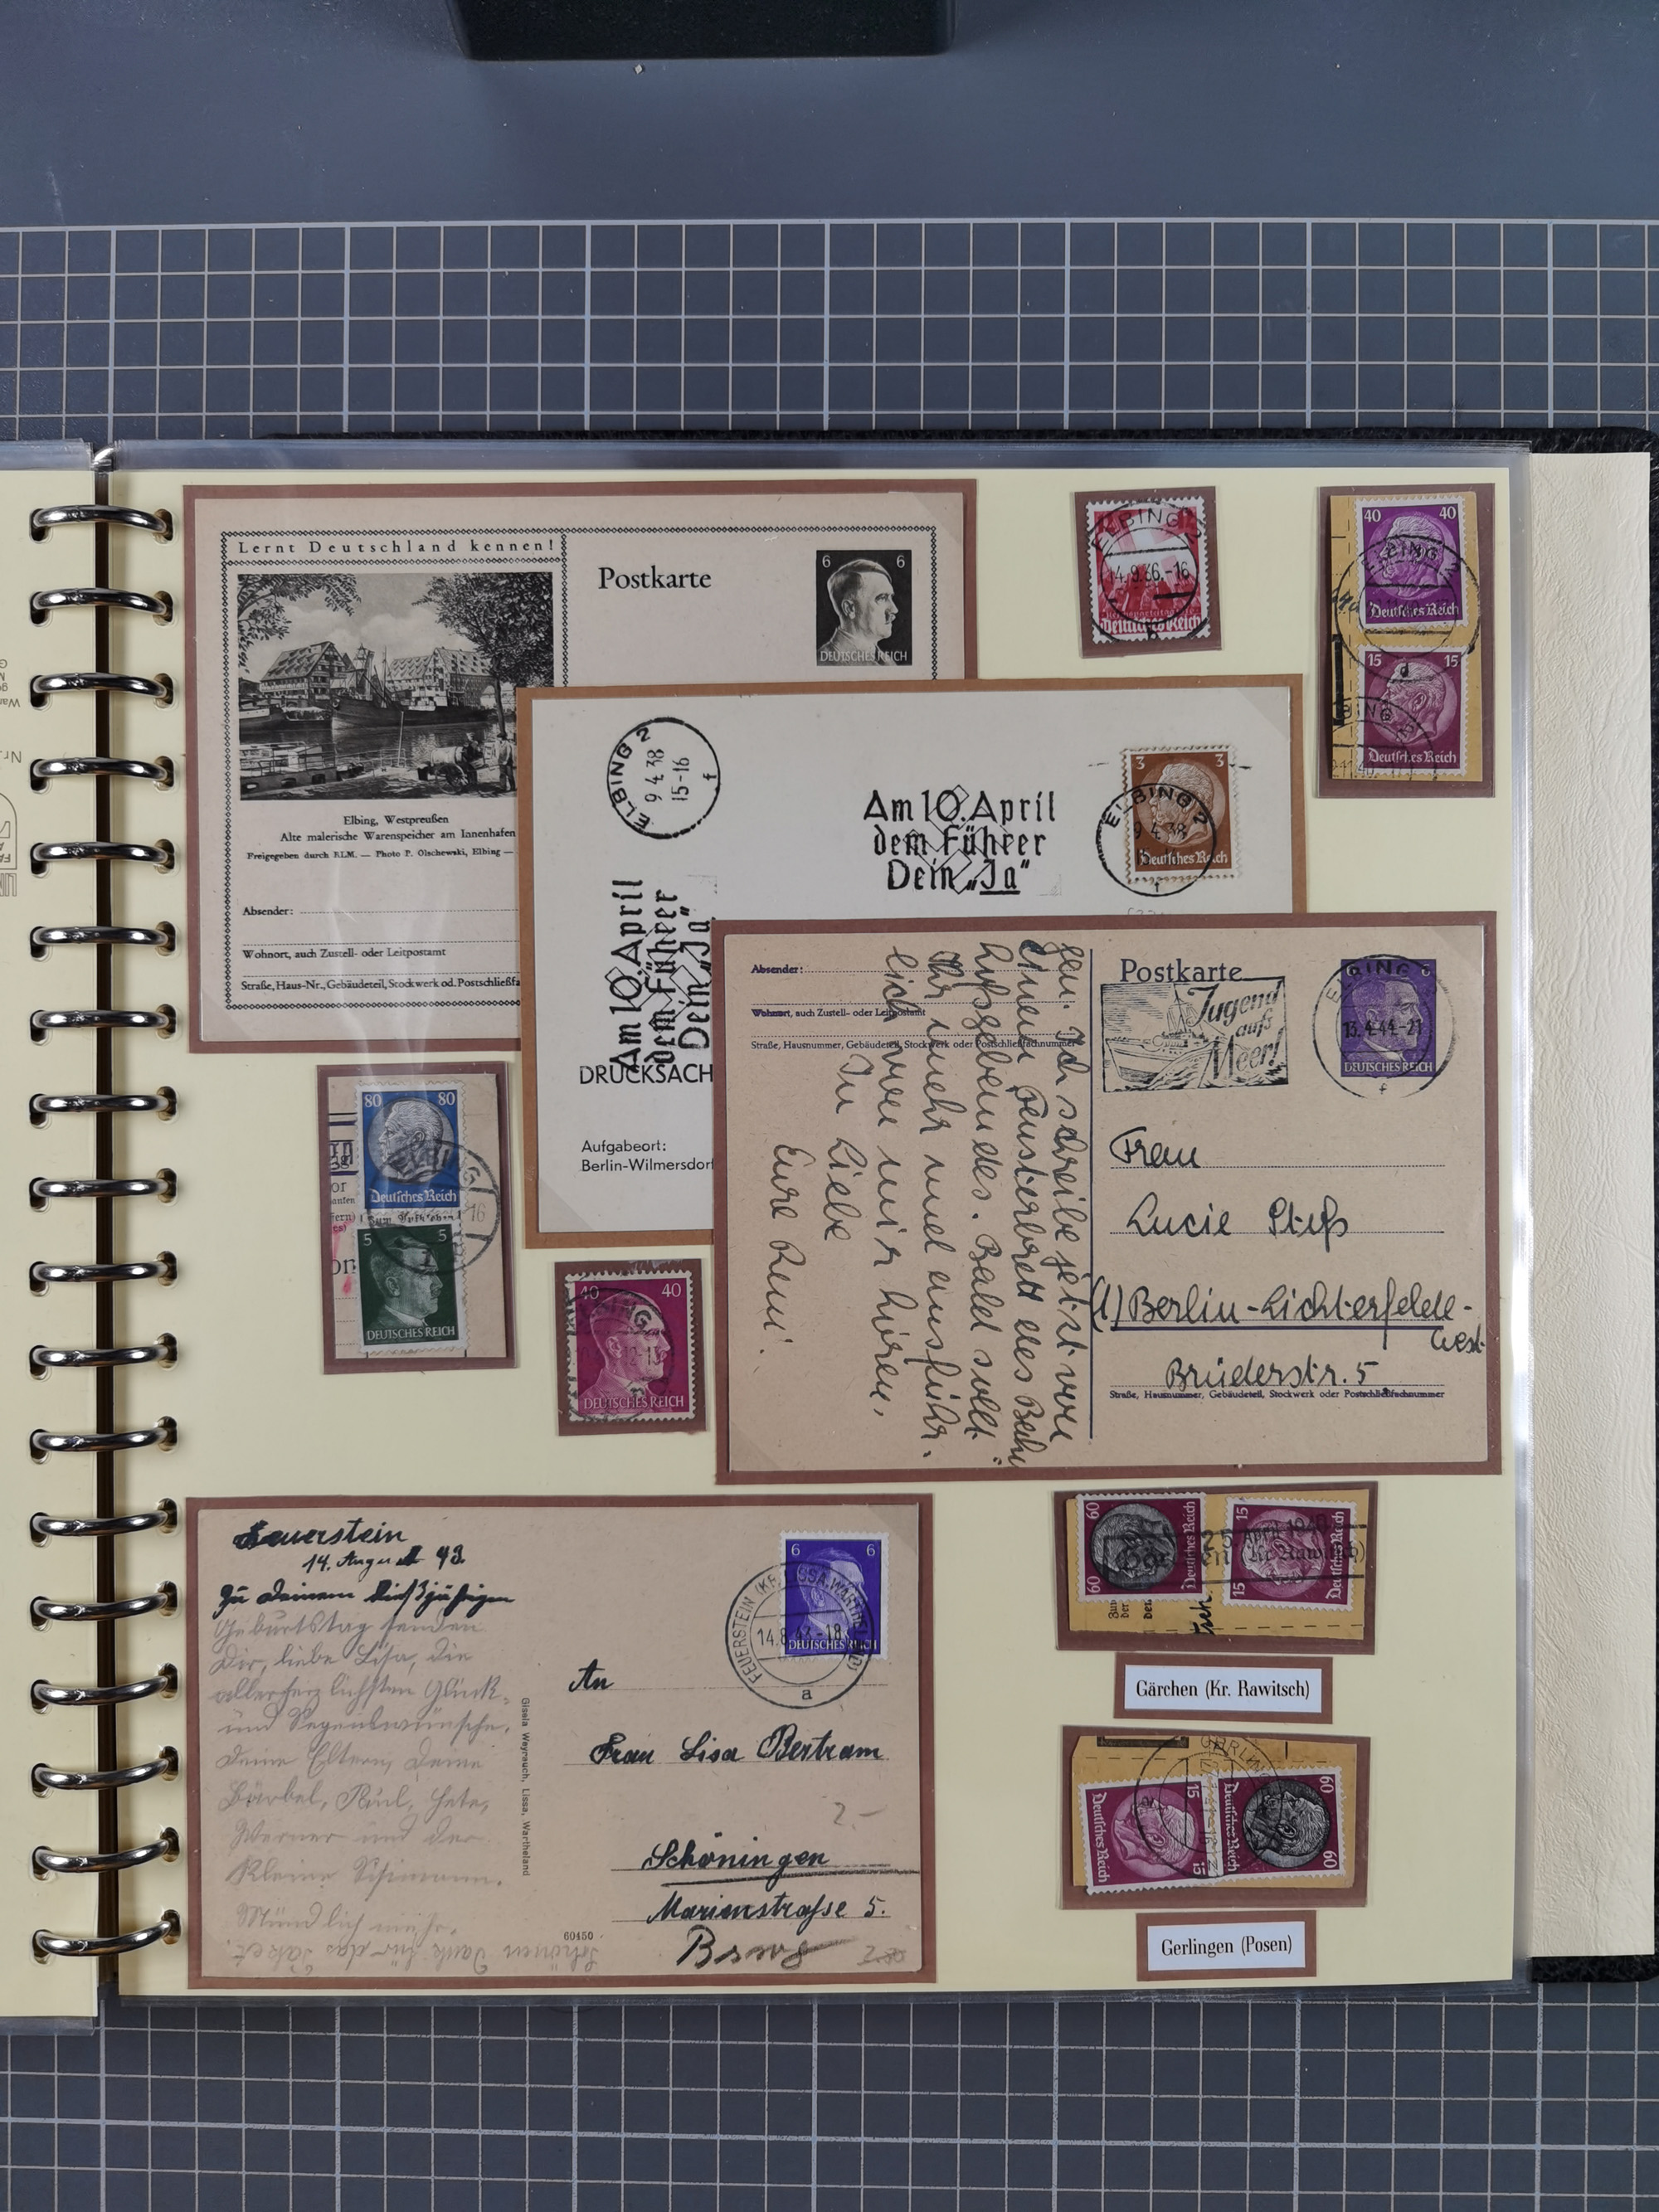 Lernt Deutschland kennen!
Postkarte
6 6
DEUTSCHES REICH
Elbing, Westpreußen
Alte malerische Warenspeicher am Innenhafen
Freigegeben durch RLM. — Photo P. Olschewski, Elbing —
Absender:
Wohnort, auch Zustell- oder Leitpostamt
Straße, Haus-Nr., Gebäudeteil, Stockwerk od. Postschließfa
ELBING 2
14.9.36.-16
Deutsches Reich
40 40
ELBING 2
Deutsches Reich
15 15
Deutsches Reich
ELBING 2
9 4 38
15-16
f
Am 10. April
dem Führer
Dein „Ja"
3 3
ELBING 2
9 4 38
Deutsches Reich
f
Am 10. April
dem Führer
Dein „Ja"
DRUCKSACH
Aufgabeort:
Berlin-Wilmersdorf
Absender:
Wohnort, auch Zustell- oder Leitpostamt
Straße, Hausnummer, Gebäudeteil, Stockwerk oder Postschließfachnummer
gen. Ich schreibe jetzt von
einem Fensterbrett des Bahn
hofsgebäudes. Bald sollt
Ihr mehr und ausführ-
lich von mir hören.
In Liebe
Eure Reni.
Postkarte
Jugend
aufs
Meer!
ELBING
6
13.4.44-21
DEUTSCHES REICH
f
Frau
Lucie
(1) Berlin-Lichterfelde-
West
Brüderstr. 5
Straße, Hausnummer, Gebäudeteil, Stockwerk oder Postschließfachnummer
80 80
ELBING
Deutsches Reich
16
5 5
DEUTSCHES REICH
40 40
ELBING
DEUTSCHES REICH
Feuerstein
14. August 43.
Zu Deinem
Geburtstag senden
Dir, liebe Lisa, die
allerherzlichsten Glück-
und Segenswünsche.
Deine Eltern, Deine
Bärbel,
Werner und der
kleine
Mündlich mehr.
Schönen Dank für das Paket.
Gisela Weyrauch, Lissa, Wartheland
60450
6 6
FEUERSTEIN (KR. LISSA, WARTHELAND)
14.8.43.-18
DEUTSCHES REICH
a
An
Frau Lisa Bertram
2-
Schöningen
Marienstraße 5.
Brswg
60 60
Deutsches Reich
15 15
Deutsches Reich
25. April 1940
(Kr. Rawitsch)
Gärchen (Kr. Rawitsch)
15 15
Deutsches Reich
60 60
Deutsches Reich
GERLINGEN
Gerlingen (Posen)